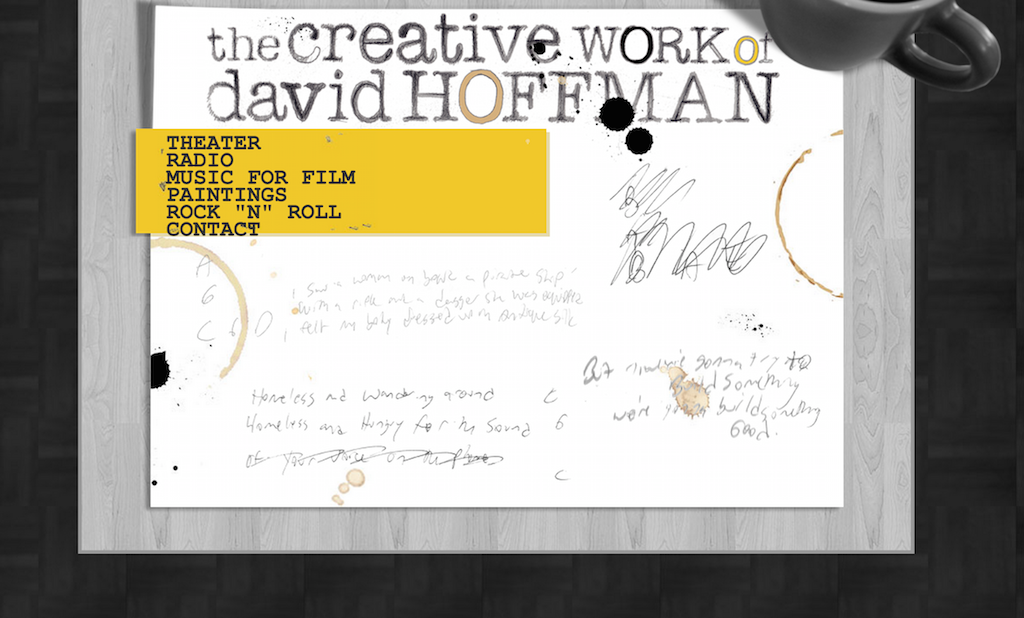 the creative WORK of
david HOFFMAN
THEATER
RADIO
MUSIC FOR FILM
PAINTINGS
ROCK "N" ROLL
CONTACT
A
G
C G D
I saw a woman on board a pirate ship
with a rifle and a dagger she was
I felt my body dressed in antique silk
Homeless and wandering around
C
Homeless and Hungry for the Sound
G
of your on the
C
At gonna try to
build something
we're gonna build something
Good.